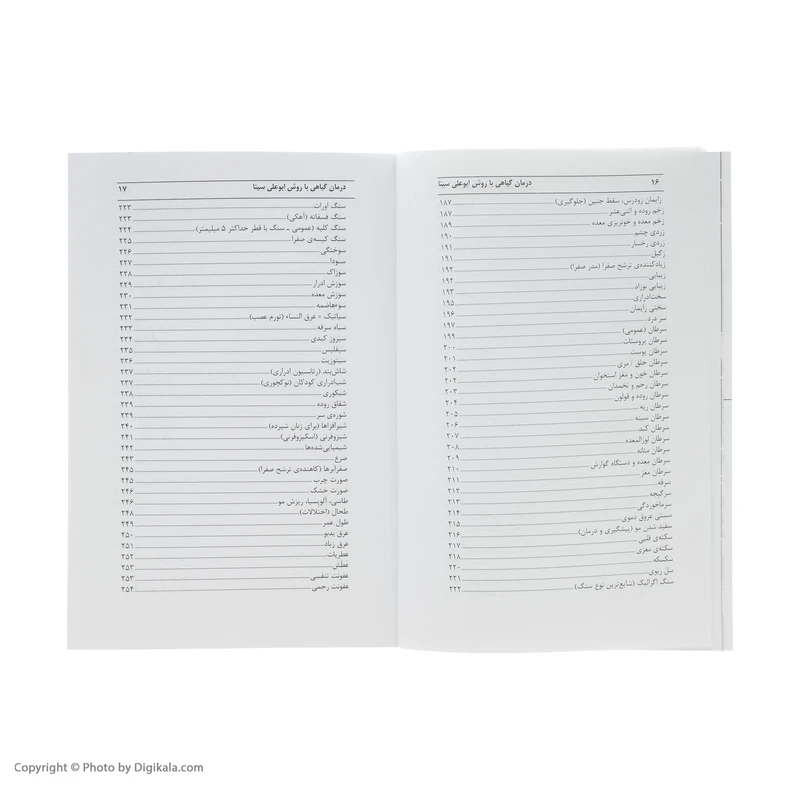 ۱۶ درمان گیاهی با روش ابوعلی سینا
زایمان زودرس، سقط جنین (جلوگیری) ۱۸۷
زخم روده و اثنی‌عشر ۱۸۷
زخم معده و خونریزی معده ۱۸۹
زردی چشم ۱۹۰
زردی رخسار ۱۹۱
زگیل ۱۹۱
زیادکننده‌ی ترشح صفرا (مدر صفرا) ۱۹۲
زیبایی ۱۹۲
زیبایی نوزاد ۱۹۳
سخت‌ادراری ۱۹۵
سختی زایمان ۱۹۶
سر درد ۱۹۷
سرطان (عمومی) ۱۹۹
سرطان پروستات ۲۰۰
سرطان پوست ۲۰۱
سرطان حلق : مری ۲۰۲
سرطان خون و مغز استخوان ۲۰۲
سرطان رحم و تخمدان ۲۰۳
سرطان روده و قولون ۲۰۴
سرطان ریه ۲۰۵
سرطان سینه ۲۰۶
سرطان کبد ۲۰۷
سرطان لوزالمعده ۲۰۸
سرطان مثانه ۲۰۹
سرطان معده و دستگاه گوارش ۲۱۰
سرطان مغز ۲۱۱
سرفه ۲۱۲
سرگیجه ۲۱۳
سرماخوردگی ۲۱۴
سستی عروق دموی ۲۱۵
سفید شدن مو (پیشگیری و درمان) ۲۱۶
سکته‌ی قلبی ۲۱۷
سکته‌ی مغزی ۲۱۸
سکسکه ۲۲۰
سل ریوی ۲۲۱
سنگ اگزالیک (شایع‌ترین نوع سنگ) ۲۲۲
درمان گیاهی با روش ابوعلی سینا ۱۷
سنگ اورات ۲۲۳
سنگ فسفاته (آهکی) ۲۲۳
سنگ کلیه (عمومی ـ سنگ با قطر حداکثر ۵ میلیمتر) ۲۲۴
سنگ کیسه‌ی صفرا ۲۲۵
سوختگی ۲۲۶
سودا ۲۲۷
سوزاک ۲۲۸
سوزش ادرار ۲۲۹
سوزش معده ۲۳۰
سوءهاضمه ۲۳۱
سیاتیک = عرق النساء (تورم عصب) ۲۳۲
سیاه سرفه ۲۳۳
سیروز کبدی ۲۳۴
سیفلیس ۲۳۵
سینوزیت ۲۳۶
شاش‌بند (رتانسیون ادراری) ۲۳۷
شب‌ادراری کودکان (نوکچوری) ۲۳۷
شبکوری ۲۳۸
شقاق روده ۲۳۹
شوره‌ی سر ۲۳۹
شیرافزاها (برای زنان شیرده) ۲۴۰
شیزوفرنی (اسکیزوفرنی) ۲۴۱
شیمیایی‌شده‌ها ۲۴۲
صرع ۲۴۳
صفرابرها (کاهنده‌ی ترشح صفرا) ۲۴۵
صورت چرب ۲۴۵
صورت خشک ۲۴۶
طاسی، آلوپسیا، ریزش مو ۲۴۶
طحال (اختلالات) ۲۴۸
طول عمر ۲۴۹
عرق بدبو ۲۵۰
عرق زیاد ۲۵۱
عطریات ۲۵۲
عطش ۲۵۳
عفونت تنفسی ۲۵۳
عفونت رحمی ۲۵۴
Copyright © Photo by Digikala.com